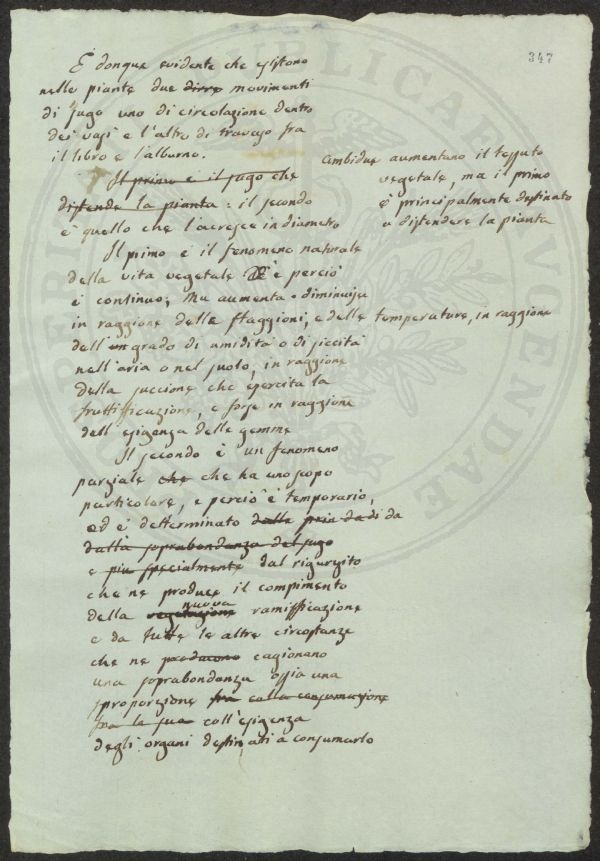 347
È donque evidente che esistono
nelle piante due movimenti
di sugo uno di circolazione dentro
dei vasi e l'altro di travaso fra
il libro e l'alburno.
Il primo è il sugo che
distende la pianta: il secondo
è quello che l'acresce in diametro
ambidue aumentano il tessuto
vegetale, ma il primo
è principalmente destinato
a distendere la pianta
Il primo è il fenomeno naturale
della vita vegetale è perciò
è continuo; Ma aumenta o diminuisce
in raggione delle staggioni, e delle temperature, in raggione
dell'un grado di umidità o di siccità
nell'aria o nel suolo, in raggione
della succione che esercita la
fruttifficazione, e forse in raggione
dell'esigenza delle gemme
Il secondo è un fenomeno
parziale che che ha uno scopo
particolare, e perciò è temporario,
ed è detterminato dalle da
dalla soprabondanza del sugo
e più specialmente dal rigurgito
che ne produce il compimento
della vegetazione nuova ramifficazione
e da tutte le altre circostanze
che ne producono cagionano
una soprabondanza ossia una
sproporzione fra colla consumazione
fra la sua coll'esigenza
degli organi destinati a consumarlo